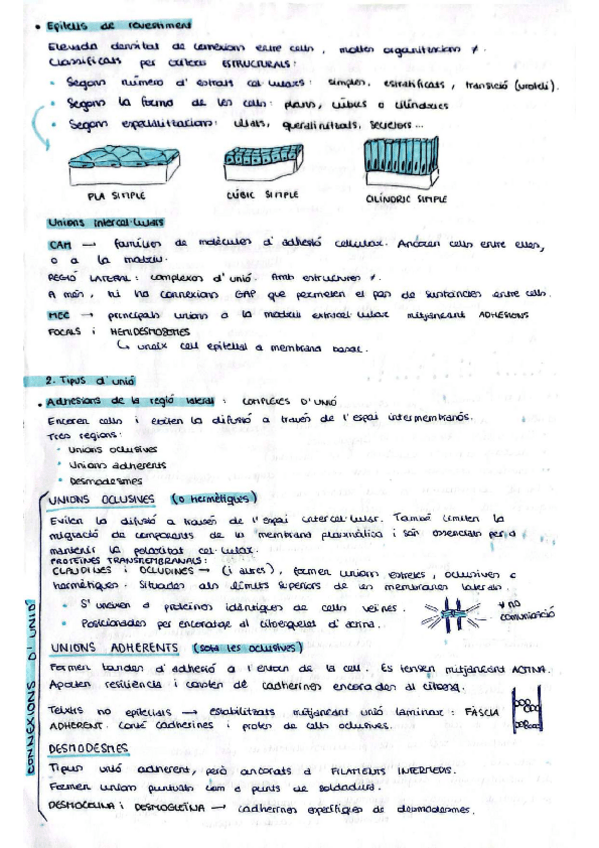 • Epitelis de revestiment
Elevada densitat de connexions entre cells, moltes organitzacions ≠.
Classificats per criteris ESTRUCTURALS:
• Segons número d' estrats cel·lulars: simples, estratificats, transició (uroteli).
• Segons la forma de les cells: plans, cúbics o cilíndrics
• Segons especialitzacions: ciliats, queratinitzats, secretors...
PLA SIMPLE
CÚBIC SIMPLE
CILÍNDRIC SIMPLE
Unions intercel·lulars
CAM → famílies de molècules d' adhesió cellular. Ancoren cells entre elles,
o a la matriu.
REGIÓ LATERAL: complexos d' unió. Amb estructures ≠.
A més, hi ha connexions GAP que permeten el pas de substàncies entre cells.
MEC → principals unions a la matriu extracel·lular mitjançant ADHESIONS
FOCALS i HEMIDESMOSOMES
↳ uneix cell epitelial a membrana basal.
2. Tipus d' unió
• Adhesions de la regió lateral: COMPLEXES D' UNIÓ
Encoren cells i eviten la difusió a través de l' espai intermembranós.
Tres regions:
• Unions oclusives
• Unions adherents
• Desmosomes
CONNEXIONS D' UNIÓ
UNIONS OCLUSIVES (o hermètiques)
Eviten la difusió a través de l' espai intercel·lular. També limiten la
migració de components de la membrana plasmàtica i són essencials per a
mantenir la polaritat cel·lular.
PROTEÏNES TRANSMEMBRANALS:
CLAUDINES i OCLUDINES → (i altres), formen unions estretes, oclusives o
hermètiques. Situades als límits superiors de les membranes laterals.
• S' uneixen a proteïnes idèntiques de cells veïnes.
• Posicionades per encoratge al citoesquelet d' actina.
no comunicació
UNIONS ADHERENTS (sota les oclusives)
Formen bandes d' adhesió a l' entorn de la cell. Es tensen mitjançant ACTINA.
Aporten resiliència i consten de cadherines encorades al citoesq.
Teixits no epitelials → estabilitzats mitjançant unió laminar: FÀSCIA
ADHERENT. Conté cadherines i protes de cells oclusives.
DESMOSOMES
Tipus unió adherent, però ancorats a FILAMENTS INTERMEDIS.
Formen unions puntuals com a punts de soldadura.
DESMOCOLINA i DESMOGLEÏNA → cadherines específiques de desmosomes.